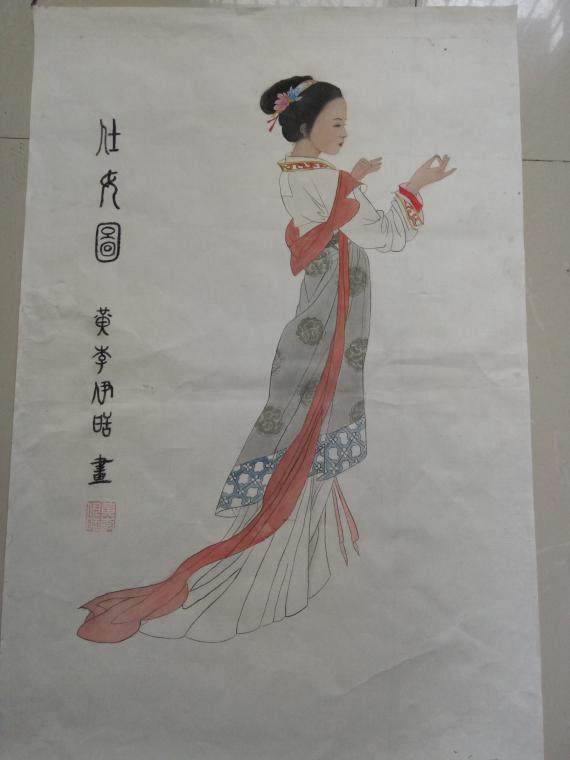 仕女圖
黄李伊晧畫